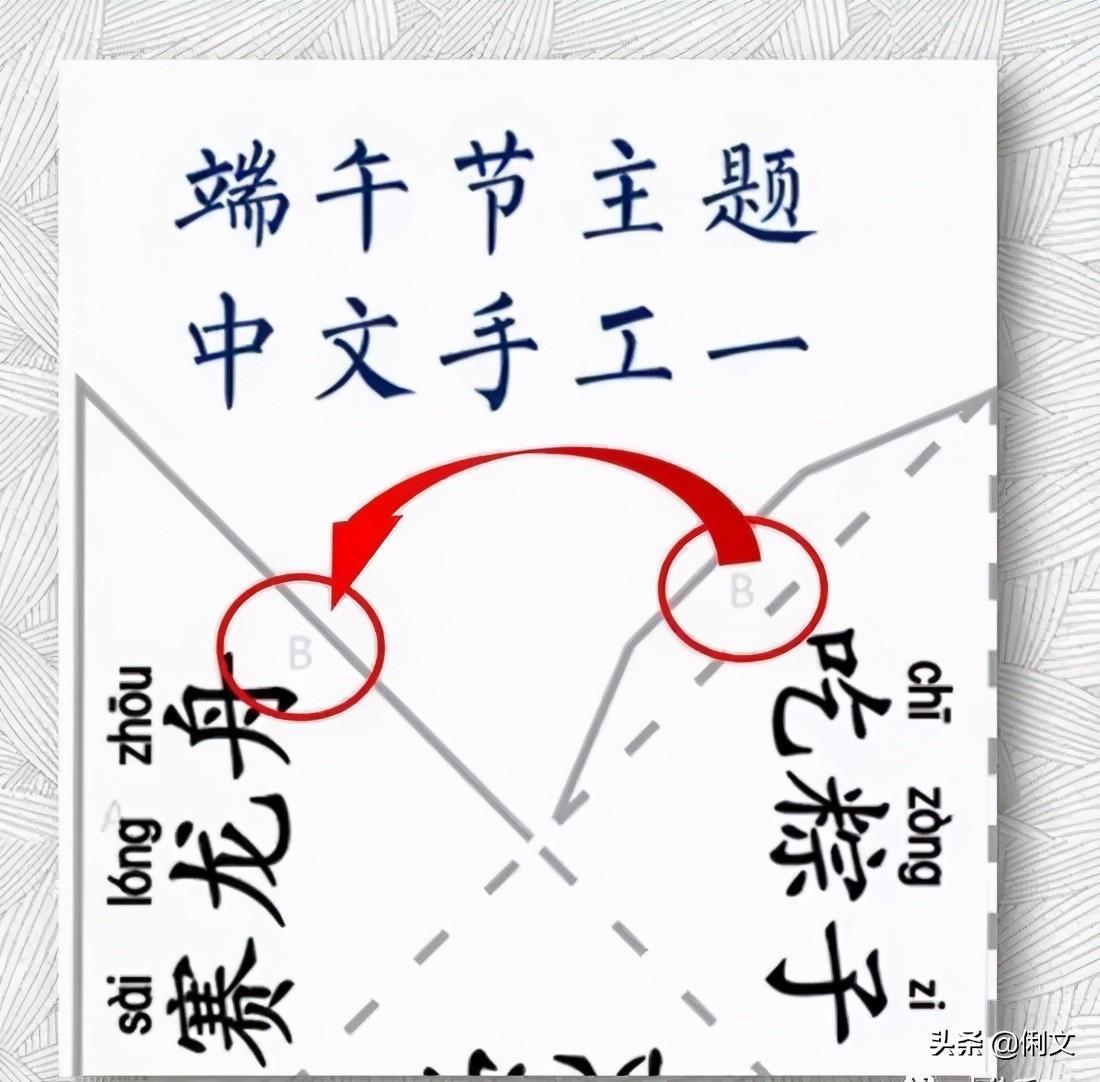 端午节主题
中文手工一
B
B
A
sài lóng zhōu
赛龙舟
chī zòng zi
吃粽子
头条 @俐文